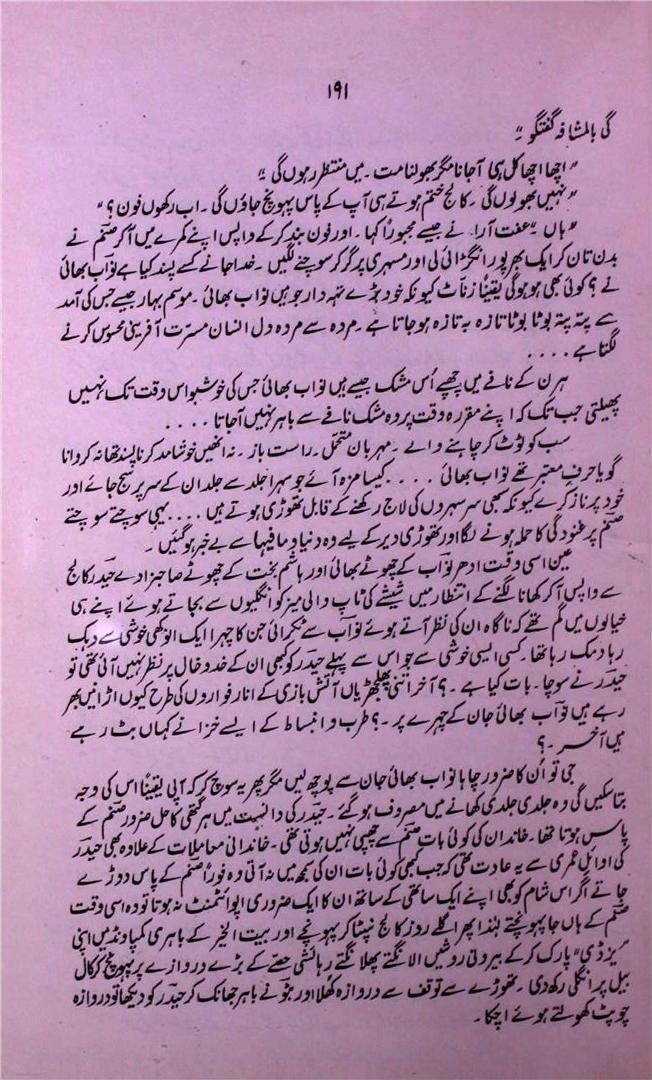 ۱۹۱
گی بالمشافہ گفتگو۔"
"اچھا اچھا کل ہی آجانا مگر بھولنا مت۔ میں منتظر رہوں گی۔"
"نہیں بھولوں گی۔ کالج ختم ہوتے ہی آپ کے پاس پہونچ جاؤں گی۔ اب رکھوں فون؟"
"ہاں۔" عفت آراء نے جیسے مجبوراً کہا۔ اور فون بند کرکے واپس اپنے کمرے میں آکر صنم نے
بدن تان کر ایک بھرپور انگڑائی لی اور مسہری پر گر کر سوچنے لگیں۔ خدا جانے کسے پسند کیا ہے نواب بھائی
نے؟ کوئی بھی ہو ہوگی یقیناً زناٹ کیونکہ خود بڑے تہہ دار جو ہیں نواب بھائی۔ موسم بہار جیسے جس کی آمد
سے پتہ پتہ بوٹا بوٹا تازہ بہ تازہ ہو جاتا ہے۔ مردہ سے مردہ دل انسان مسرت آفرینی محسوس کرنے
لگتا ہے ....
ہرن کے نافے میں چھپے اُس مشک جیسے ہیں نواب بھائی جس کی خوشبو اس وقت تک نہیں
پھیلتی جب تک کہ اپنے مقررہ وقت پر وہ مشک نافے سے باہر نہیں آجاتا ....
سب کو ٹوٹ کر چاہنے والے۔ مہربان متحمل۔ راست باز۔ نہ انھیں خوشامد کرنا پسند تھا نہ کروانا
گویا حرفِ معتبر تھے نواب بھائی .... کیسا مزہ آئے جو سہرا جلد سے جلد ان کے سر پر سج جائے اور
خود پر ناز کرے کیونکہ سبھی سر سہروں کی لاج رکھنے کے قابل تھوڑی ہوتے ہیں .... یہی سوچتے سوچتے
صنم پر غنودگی کا حملہ ہونے لگا اور تھوڑی دیر کے لیے وہ دنیا و مافیہا سے بے خبر ہوگئیں۔
عین اسی وقت ادھر نواب کے چھوٹے بھائی اور ہاشم بخت کے چھوٹے صاحبزادے حیدر کالج
سے واپس آکر کھانا لگنے کے انتظار میں شیشے کی ٹاپ والی میز کو انگلیوں سے بجاتے ہوئے اپنے ہی
خیالوں میں گم تھے کہ ناگاہ ان کی نظر آتے ہوئے نواب سے ٹکرائی جن کا چہرا ایک انوکھی خوشی سے دہک
رہا دمک رہا تھا۔ کسی ایسی خوشی سے جو اس سے پہلے حیدر کو کبھی ان کے خدوخال پر نظر نہیں آئی تھی تو
حیدر نے سوچا۔ بات کیا ہے۔؟ آخر اتنی پھلجھڑیاں آتش بازی کے انار فواروں کی طرح کیوں اڑانیں بھر
رہے ہیں نواب بھائی جان کے چہرے پر۔؟ طرب و انبساط کے ایسے خزانے کہاں بٹ رہے
ہیں آخر۔؟
جی تو اُن کا ضرور چاہا نواب بھائی جان سے پوچھ لیں مگر پھر یہ سوچ کر کہ آپی یقیناً اس کی وجہ
بتا سکیں گی وہ جلدی جلدی کھانے میں مصروف ہوگئے۔ حیدر کی دانست میں ہر گتھی کا حل ضرور صنم کے
پاس ہوتا تھا۔ خاندان کی کوئی بات صنم سے چھپی نہیں ہوتی تھی۔ خاندانی معاملات کے علاوہ بھی حیدر
کی اوائل عمری سے یہ عادت تھی کہ جب کبھی کوئی بات ان کی سمجھ میں نہ آتی وہ فوراً صنم کے پاس دوڑے
جاتے اگر اس شام کو بھی اپنے ایک ساتھی کے ساتھ ان کا ایک ضروری اپوائنٹمنٹ نہ ہوتا تو وہ اسی وقت
صنم کے ہاں جا پہونچتے لہٰذا پھر اگلے روز کالج نپٹا کر پہونچے اور بیت الخیر کے باہری کمپاونڈ میں اپنی
"یزدی" پارک کرکے بیرونی روشیں الانگتے پھلانگتے رہائشی حصے کے بڑے دروازے پر پہونچ کر کال
بیل پر انگلی رکھ دی۔ تھوڑے سے توقف سے دروازہ کھلا اور بتو نے باہر جھانک کر حیدر کو دیکھا تو دروازہ
چوپٹ کھولتے ہوئے اچکا۔